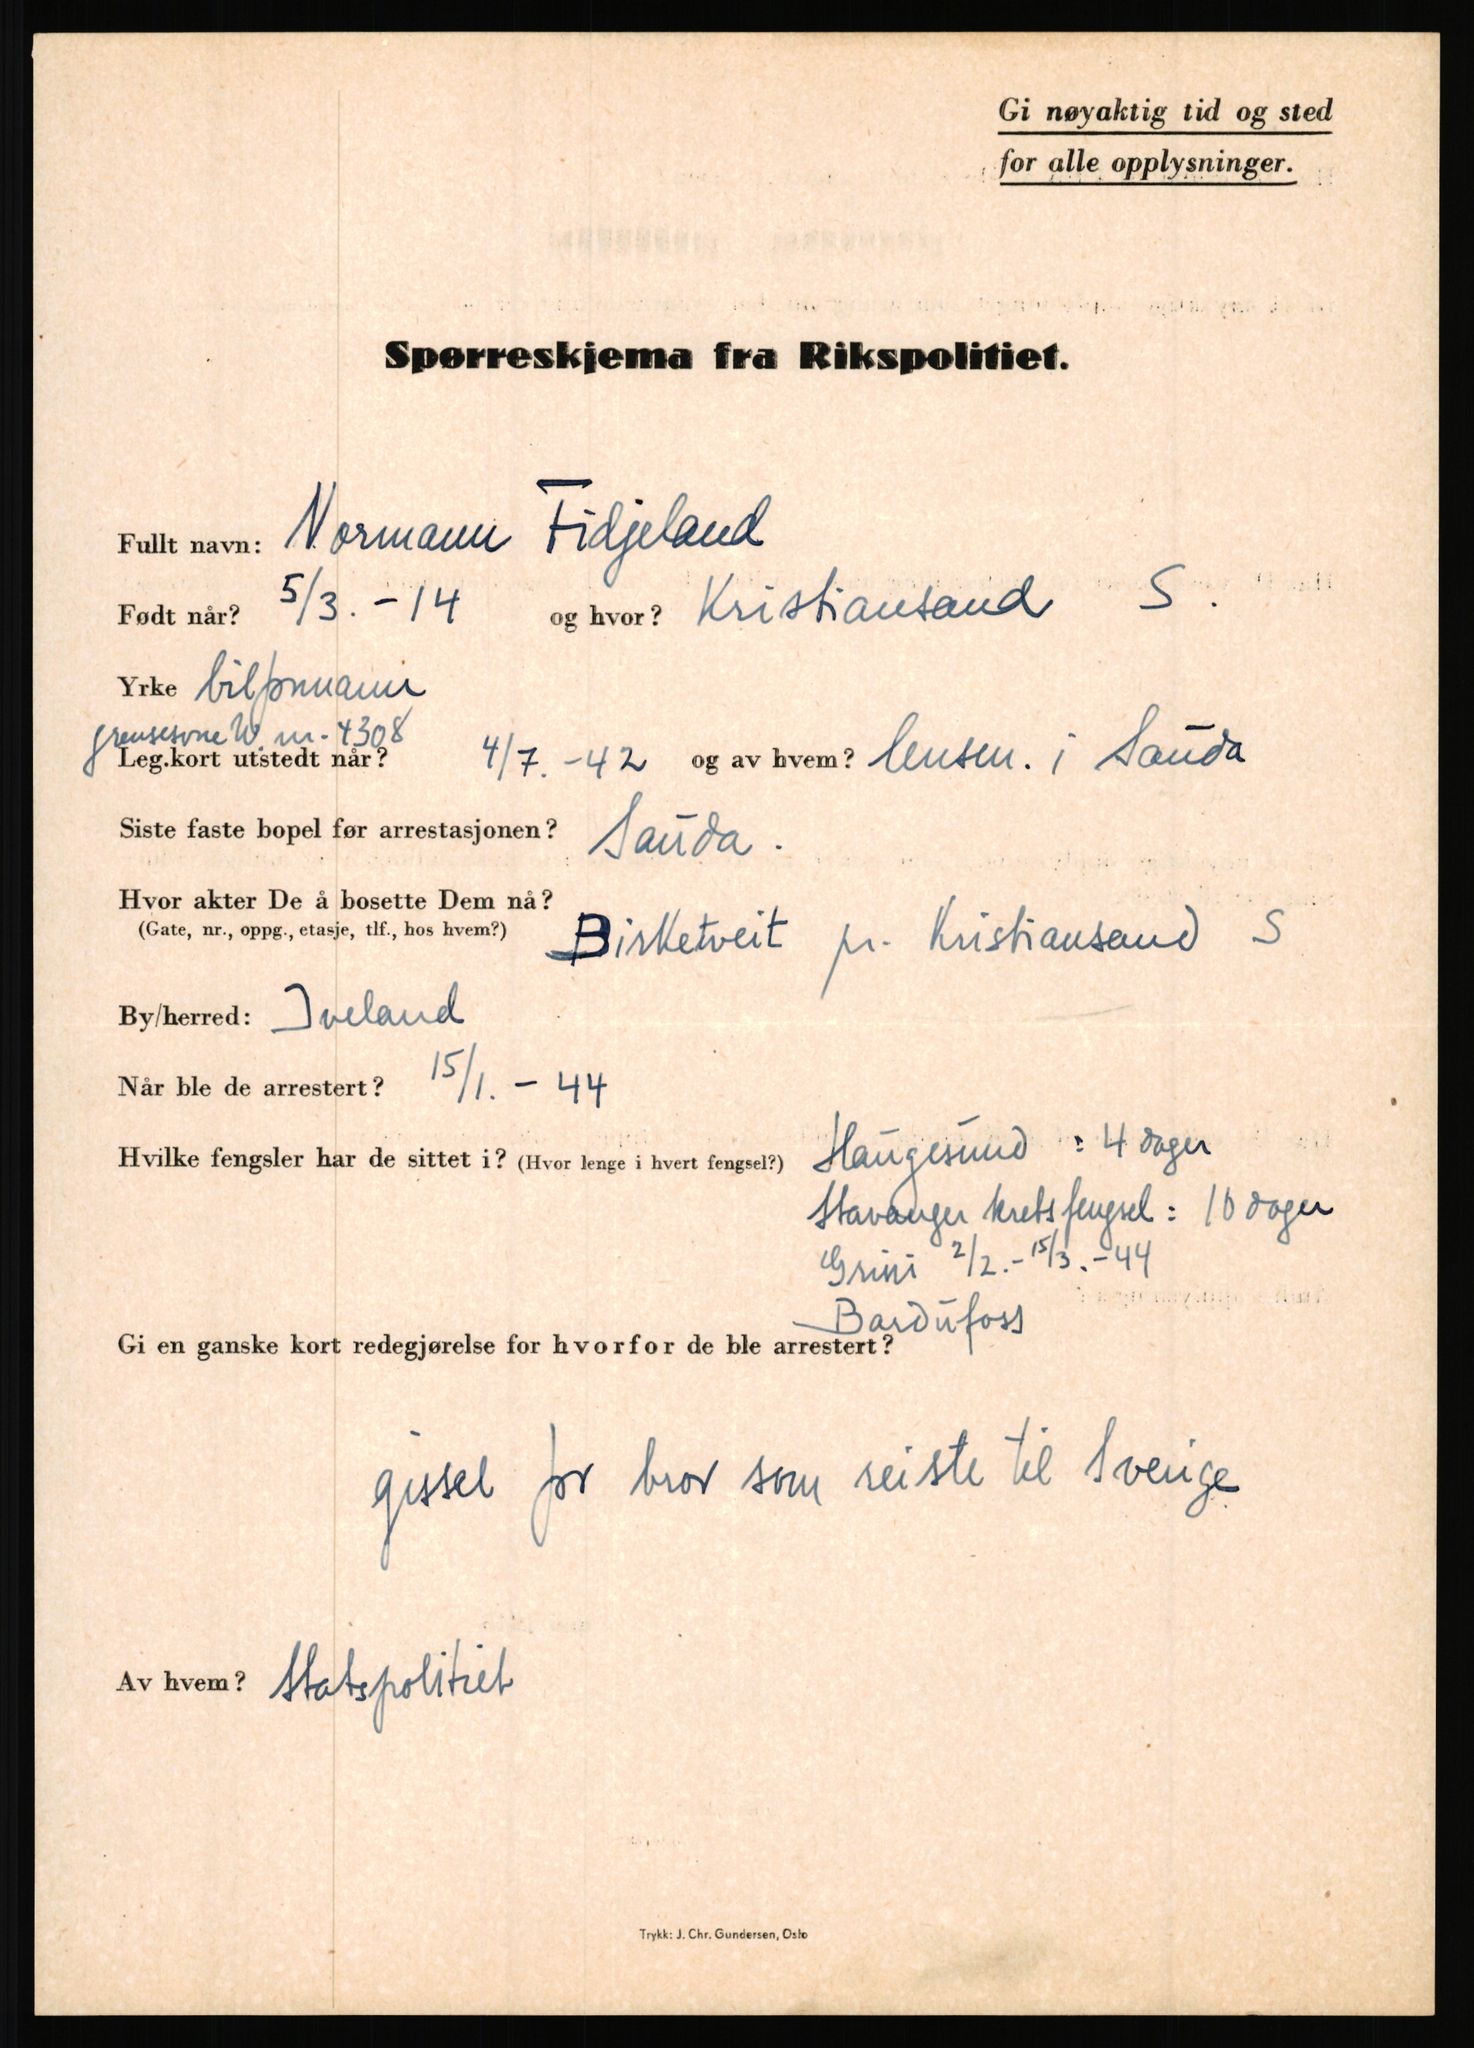 Gi nøyaktig tid og sted
for alle opplysninger.
Spørreskjema fra Rikspolitiet.
Fullt navn: Normann Fidjeland
Født når? 5/3. - 14 og hvor? Kristiansand S.
Yrke
grensesone W. nr. 4308
Leg.kort utstedt når? 4/7. - 42 og av hvem? lensm. i Sauda
Siste faste bopel før arrestasjonen? Sauda.
Hvor akter De å bosette Dem nå?
(Gate, nr., oppg., etasje, tlf., hos hvem?) Birketveit pr. Kristiansand S
By/herred: Iveland
Når ble de arrestert? 15/1. - 44
Hvilke fengsler har de sittet i? (Hvor lenge i hvert fengsel?) Haugesund : 4 dager
Stavanger kretsfengsel : 10 dager
Grini 2/2. - 15/3. - 44
Bardufoss
Gi en ganske kort redegjørelse for hvorfor de ble arrestert?
gissel for bror som reiste til Sverige
Av hvem? Statspolitiet
Trykk: J. Chr. Gundersen, Oslo